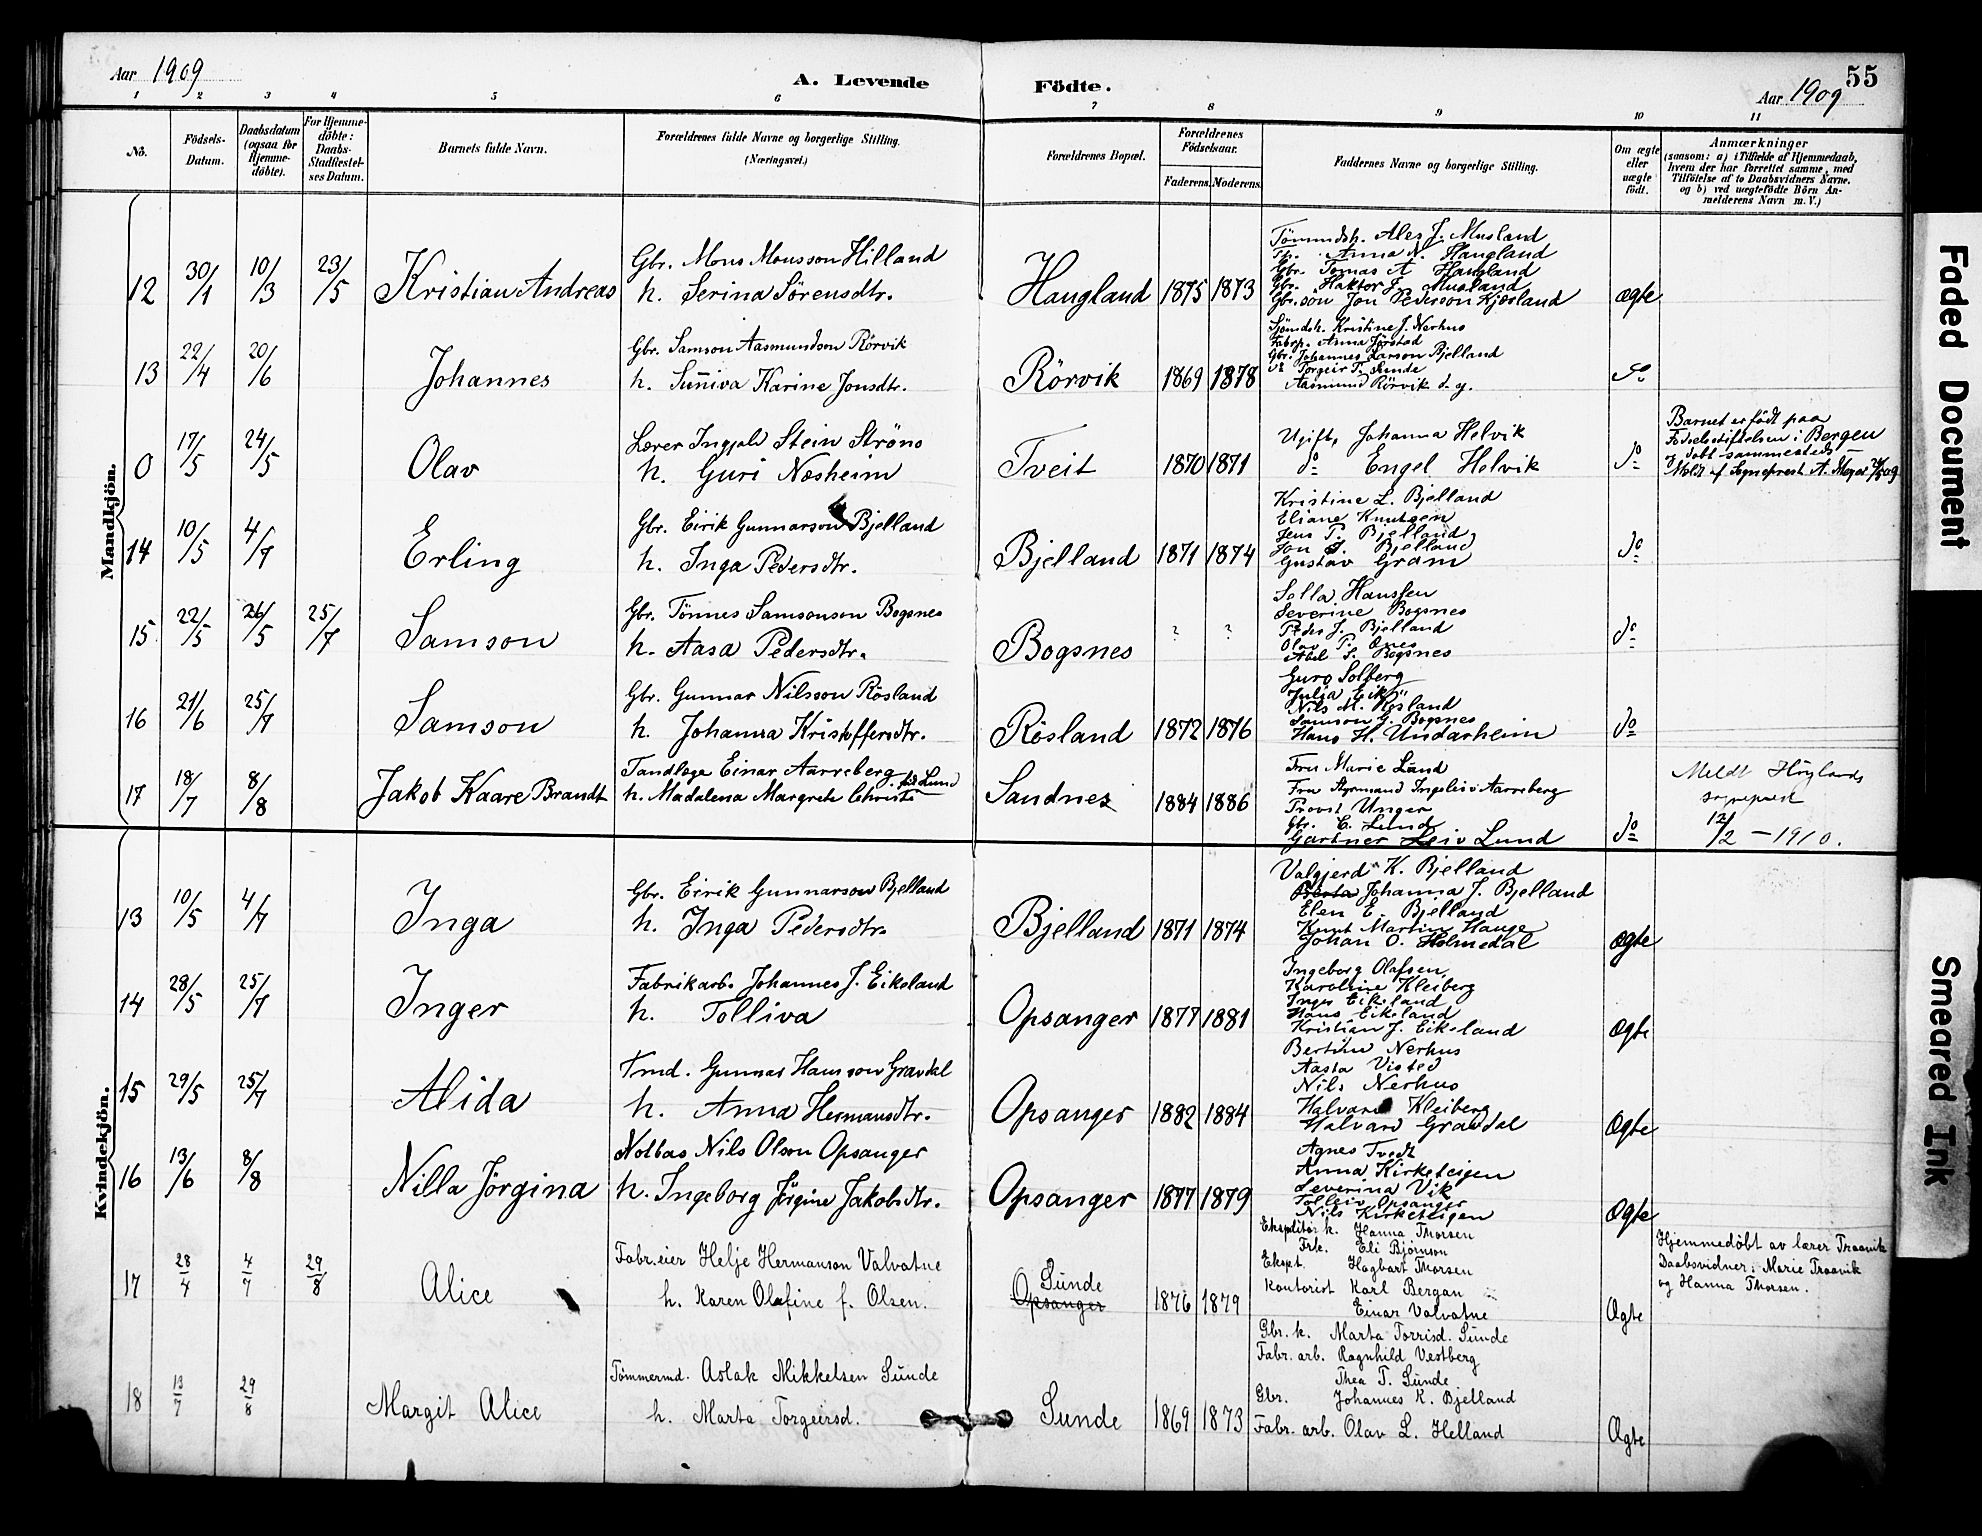 Aar 1909
A. Levende
Födte.
Aar 1909
55
1 2 3 4 5 6 7 8 9 10 11
No.
Födsels-
Datum.
Daabsdatum
(ogsaa for
Hjemme-
döbte).
For Hjemme-
döbte:
Daabs-
Stadfæstel-
ses Datum.
Barnets fulde Navn.
Forældrenes fulde Navne og borgerlige Stilling.
(Næringsvei.)
Forældrenes Bopæl.
Forældrenes
Födselsaar.
Faderens. Moderens.
Faddernes Navne og borgerlige Stilling.
Om ægte
eller
uægte
födt.
Anmærkninger
(saasom: a) i Tilfælde af Hjemmedaab,
hvem der har forrettet samme, med
Tilföielse af to Daabsvidners Navne.
og b) ved uægtefödte Börn An-
melderens Navn m. V.)
Mandkjön.
12 30/1 10/3 23/5 Kristian Andreas
Gbr. Mons Monsson Hilland
h. Serina Sörensdtr.
Haugland 1875 1873
Tömmdsh. Ales J. Musland
Anna N. Haugland
Gbr. Tomas A Haugland
Gbr. Haktor J. Musland
Gbr.son Jon Pederson Kjærland
ægte
13 22/4 20/6 Johannes
Gbr. Samson Aasmundson Rörvik
h. Suniva Karine Jonsdtr.
Rörvik 1869 1878
Sjömdsh. Kristine J. Nerhus
Anna Jöstad
Gbr. Johannes Larson Bjelland
Torgeir T. Sunde
Aasmund Rörvik d. y.
do
0 17/5 24/5 Olav
Lærer Ingjald Stein Ströno
h. Guri Næsheim
Tveit 1870 1871
Ugift, Johanna Helvik
do Engel Helvik
do
Barnet er födt paa
Födselsstiftelsen i Bergen
og döbt sammesteds
Meldt af Sogneprest A.
14 10/5 4/7 Erling
Gbr. Eirik Gunnarson Bjelland
h. Inga Pedersdtr.
Bjelland 1871 1874
Kristine L. Bjelland
Eliane Knutsen
Jens P. Bjelland
Jon J. Bjelland
Gustav Gram
do
15 22/5 26/5 25/7 Samson
Gbr. Tönnes Samsonson Bogsnes
h. Aasa Pedersdtr.
Bogsnes ? ?
Solla Hanssen
Severine Bogsnes
Peder J. Bjelland
Olav P. Ænes
Abel S. Bogsnes
do
16 21/6 25/7 Samson
Gbr. Gunnar Nilsson Rösland
h. Johanna Kristoffersdtr.
Rösland 1872 1876
Guro Solberg
Julia Eik
Nils M. Rösland
Samson G. Bogsnes
Hans H. Undarheim
do
17 18/7 8/8 Jakob Kaare Brandt
Tandlæge Einar Aarreberg
h. Madalena Margrete Christi födt Lund
Sandnes 1884 1886
Fru Marie Lund
Fru Styrmand Ingeleiv Aarreberg
Provst Unger
Gbr. C. Lund
Gartner Leiv Lund
do
Meldt Höylands
sogneprest
12/2 - 1910.
Kvindekjön.
13 10/5 4/7 Inga
Gbr. Eirik Gunnarson Bjelland
h. Inga Pedersdtr
Bjelland 1871 1874
Valgjerd K. Bjelland
Johanna J. Bjelland
Elen E. Bjelland
Knut Martin Hauge
Johan O. Holmedal
ægte
14 28/5 25/7 Inger
Fabrikarb. Johannes J. Eikeland
h. Tolliva
Opsanger 1877 1881
Ingeborg Olafsen
Karoline Kleiberg
Inger Eikeland
Hans Eikeland
Kristian J. Eikeland
Ægte
15 29/5 25/7 Alida
Tmd. Gunnar Hansson Gravdal
h. Anna Hermansdtr.
Opsanger 1882 1884
Bertine Nerhus
Aasta Visted
Nils Nerhus
Halvard Kleiberg
Halvard Gravdal
Ægte
16 13/6 8/8 Nilla Jörgina
Notbas Nils Olson Opsanger
h. Ingeborg Jörgine Jakobsdtr.
Opsanger 1877 1879
Agnes Tvedt
Anna Kirketeigen
Severina Vik
Tolleiv Opsanger
Nils Kirketeigen
Ægte
17 28/4 4/7 29/8 Alice
Fabr.eier Helje Hermanson Valvatne
h. Karen Olafine f. Olsen.
Sunde
Opsanger
1876 1879
Ekspeditör k. Hanna Thorsen
Frk. Eli Björnson
Ekspet. Hagbart Thorsen
Kontorist Karl Bergan
Einar Valvatne
Ægte
Hjemmedöbt av lærer Traavik
Daabsvidner: Marie Traavik
og Hanna Thorsen.
18 13/7 29/8 Margit Alice
Tömmermd. Aslak Mikkelsen Sunde
h. Marta Torgeirsd.
Sunde 1869 1873
Gbr. k. Marta Torrisd. Sunde
Fabr. arb. Ragnhild Vestberg
Thea T. Sunde
Gbr. Johannes K. Bjelland
Fabr. arb. Olav L. Helland
Ægte
Faded Document
Smeared Ink